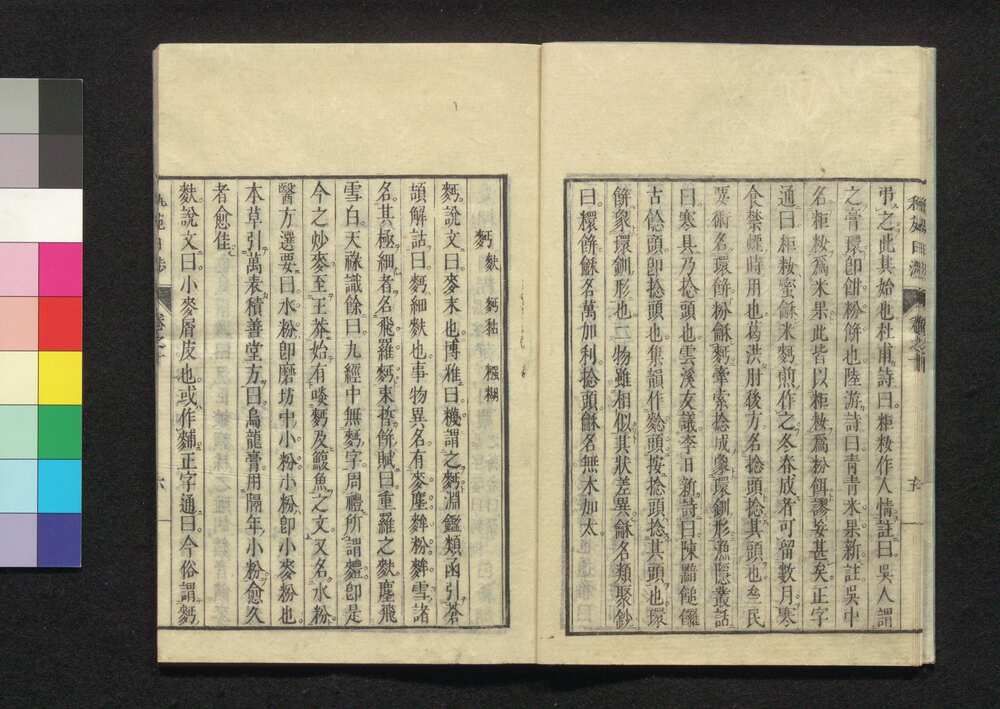 弔之此其始也杜甫詩曰粔籹作人情註曰吳人謂
之膏環卽餠粉餅也陸游詩曰青青米果新註吳中
名粔籹爲米果此皆以粔籹爲粉餌謬妄甚矣正字
通曰粔籹蜜龢米麪煎作之冬春成者可留數月寒
食禁煙時用也葛洪肘後方名捻頭捻其頭也叁民
要術名環餅粉龢麪牽索捻成象環釧形漁隱叢話
曰寒具乃捻頭也雲溪友議李日新詩曰陳黯鎚饠
古䭃頭卽捻頭也集韻作䭃頭按捻頭捻其頭也環
餅象環釧形也二物雖相似其狀差異龢名類聚鈔
曰糫餅龢名萬加利捻頭龢名無木加太
麪 麩 麪䴴 糨糊
麪說文曰麥末也博雅曰䊛謂之麪淵鑑類函引蒼
頡解詁曰麪細麩也事物異名有麥塵麰粉麰雪諸
名其極細者名飛羅麪束晳餅賦曰重羅之麩塵飛
雪白天祿識餘曰九經中無麪字周禮所謂麷卽是
今之炒麥至王莽始有啖麪及鰒魚之文又名水粉
醫方選要曰水粉卽磨坊中小粉小粉卽小麥粉也
本草引萬表積善堂方曰烏龍膏用隔年小粉愈久
者愈佳
麩說文曰小麥屑皮也或作䴸正字通曰今俗謂麪